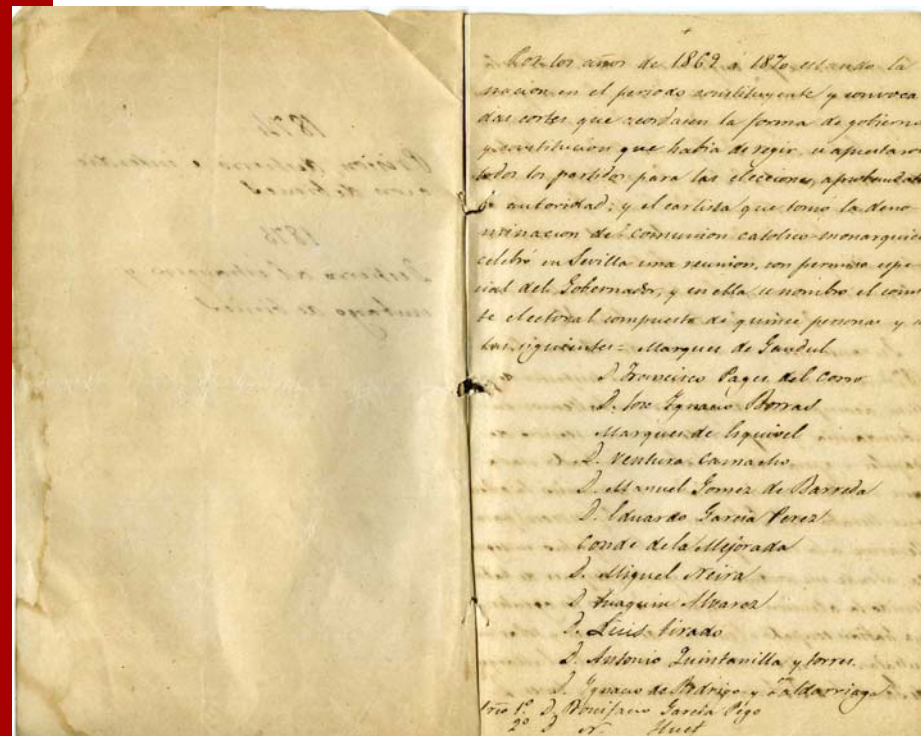 Por los años de 1869 a 1870 estando la
nacion en el periodo constituyente y convoca
das cortes que acordasen la forma de gobierno
y constitucion que habia de regir, se aprestaron
todos los partidos para las elecciones,
la autoridad; y el carlista que tomó la deno
minacion de comunion catolico monarquica
celebró en Sevilla una reunion, con permiso espe
cial del Gobernador, y en ella se nombró el comi
te electoral compuesto de quince personas y
las siguientes = Marques de Gandul
D. Francisco Pages del Corro
D. Jose Ygnacio Borras
Marques de Esquivel
D. Ventura Camacho
D. Manuel Gomez de Barreda
D. Eduardo Garcia Perez
Conde de la Mejorada
D. Miguel Neira
D. Joaquin Alvarez
D. Luis tirado
D. Antonio Quintanilla y torres
D. Ygnacio de y Zaldarriaga
1º D. Bonifacio Garcia Pego
2º D. N. Huet